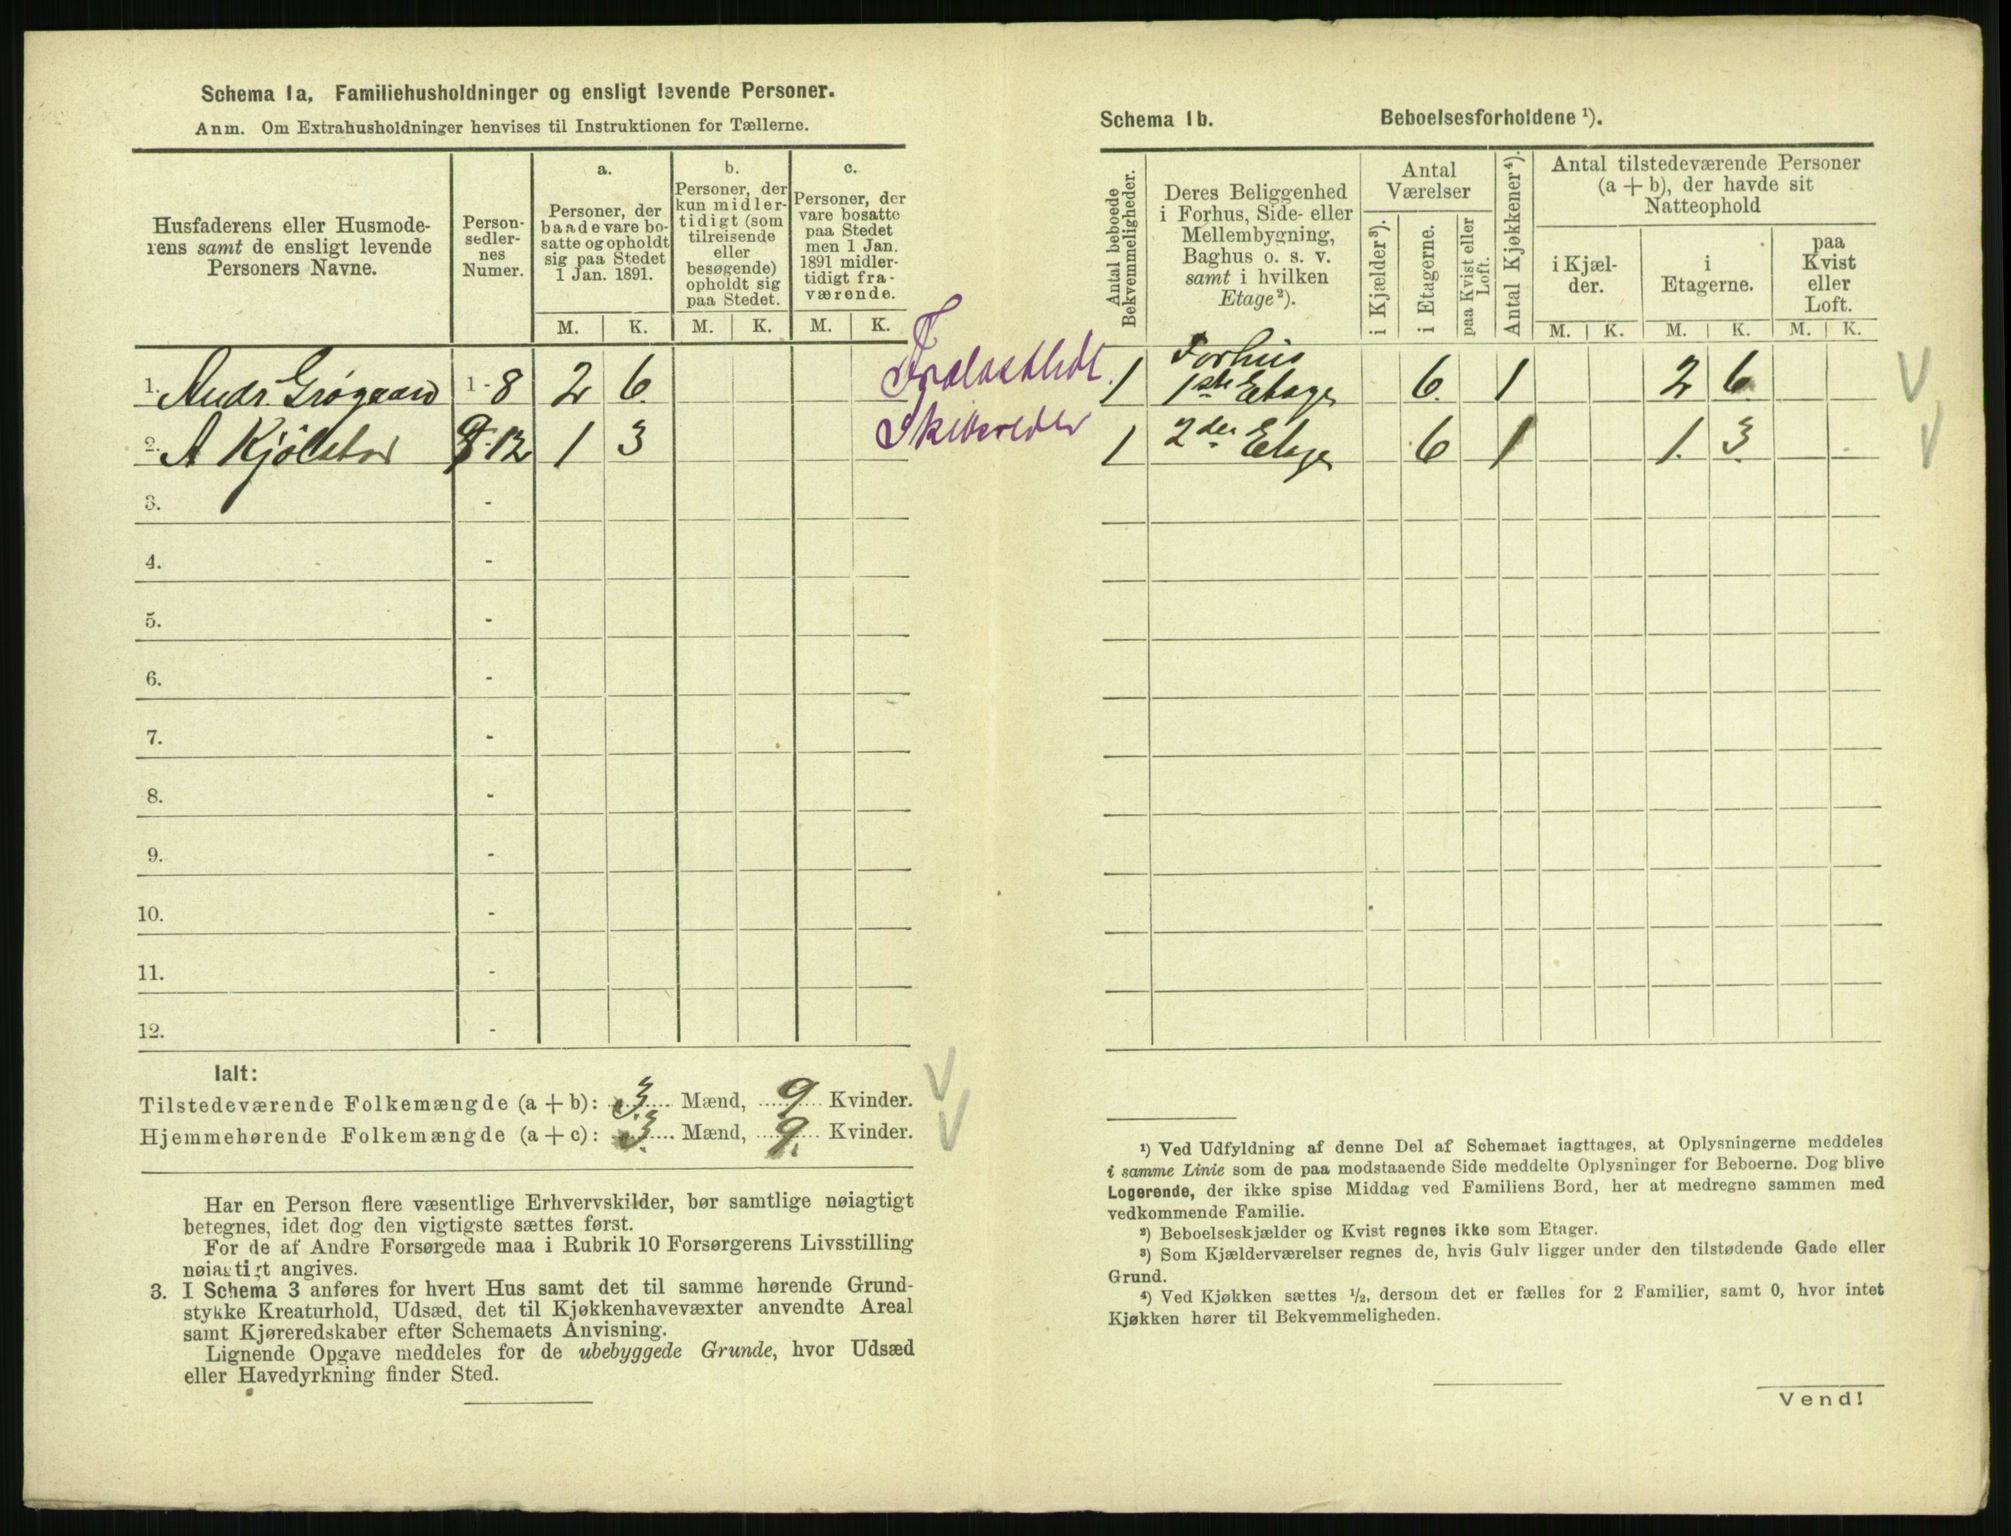 Schema 1a, Familiehusholdninger og ensligt levende Personer.
Anm. Om Extrahusholdninger henvises til Instruktionen for Tællerne.
Husfaderens eller Husmode-
rens samt de ensligt levende
Personers Navne.
Person-
sedler-
nes
Numer.
a.
Personer, der
baade vare bo-
satte og opholdt
sig paa Stedet
1 Jan. 1891.
b.
Personer, der
kun midler-
tidigt (som
tilreisende
eller
besøgende)
opholdt sig
paa Stedet.
c.
Personer, der
vare bosatte
paa Stedet
men 1 Jan.
1891 midler-
tidigt fra-
værende.
M. K. M. K. M. K.
1. Andr. Grøgaard 1 - 8 2 6.
2. A Kjölstad 9 - 12 1 3
3. -
4. -
5. -
6. -
7. -
8. -
9. -
10. -
11. -
12. -
Ialt:
Tilstedeværende Folkemængde (a + b): 3 Mænd, 9 Kvinder.
Hjemmehørende Folkemængde (a + c): 3 Mænd, 9 Kvinder.
Har en Person flere væsentlige Erhvervskilder, bør samtlige nøiagtigt
betegnes, idet dog den vigtigste sættes først.
For de af Andre Forsørgede maa i Rubrik 10 Forsørgerens Livsstilling
nøiagtigt angives.
3. I Schema 3 anføres for hvert Hus samt det til samme hørende Grund-
stykke Kreaturhold, Udsæd, det til Kjøkkenhavevæxter anvendte Areal
samt Kjøreredskaber efter Schemaets Anvisning.
Lignende Opgave meddeles for de ubebyggede Grunde, hvor Udsæd
eller Havedyrkning finder Sted.
Skibsreder
Schema 1b. Beboelsesforholdene ¹).
Antal beboede
Bekvemmeligheder.
Deres Beliggenhed
i Forhus, Side- eller
Mellembygning,
Baghus o. s. v.
samt i hvilken
Etage²).
Antal
Værelser
i Kjælder³).
i Etagerne.
paa Kvist eller
Loft.
Antal Kjøkkener⁴).
Antal tilstedeværende Personer
(a + b), der havde sit
Natteophold
i Kjæl-
der.
i
Etagerne.
paa
Kvist
eller
Loft.
M. K. M. K. M. K.
Forhus
1 1ste Etage 6. 1 2 6.
1 2den Etage 6 1 1. 3.
¹) Ved Udfyldning af denne Del af Schemaet iagttages, at Oplysningerne meddeles
i samme Linie som de paa modstaaende Side meddelte Oplysninger for Beboerne. Dog blive
Logerende, der ikke spise Middag ved Familiens Bord, her at medregne sammen med
vedkommende Familie.
²) Beboelseskjælder og Kvist regnes ikke som Etager.
³) Som Kjælderværelser regnes de, hvis Gulv ligger under den tilstødende Gade eller
Grund.
⁴) Ved Kjøkken sættes ½, dersom det er fælles for 2 Familier, samt 0, hvor intet
Kjøkken hører til Bekvemmeligheden.
Vend!